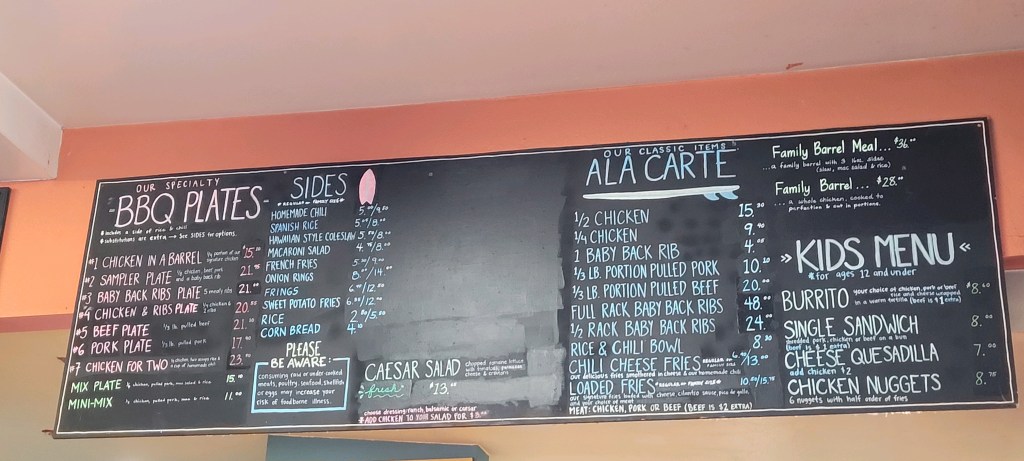 OUR SPECIALTY
BBQ PLATES
* includes a side of rice & chili
* substitutions are extra → See SIDES for options.
#1 CHICKEN IN A BARREL 1/4 portion of our signature chicken $15.
#2 SAMPLER PLATE 1/4 chicken, beef, pork and a baby back rib 21.
#3 BABY BACK RIBS PLATE 5 meaty ribs 21.
#4 CHICKEN & RIBS PLATE 1/4 chicken & 2 ribs 20.
#5 BEEF PLATE 1/3 lb. pulled beef 21.
#6 PORK PLATE 1/3 lb. pulled pork 17.
#7 CHICKEN FOR TWO 23.
MIX PLATE 1/4 chicken, pulled pork, mac salad & rice 15.
MINI-MIX 1/4 chicken, pulled pork, & rice 11.
SIDES
*REGULAR - FAMILY SIZE*
HOMEMADE CHILI
SPANISH RICE
HAWAIIAN STYLE COLESLAW
MACARONI SALAD
FRENCH FRIES
ONION RINGS
FRINGS
SWEET POTATO FRIES
RICE
CORN BREAD
PLEASE
BE AWARE:
consuming raw or under cooked
meats, poultry, seafood, shellfish
or eggs may increase your
risk of foodborne illness.
CAESAR SALAD chopped romaine lettuce
with tomatoes, parmesan
cheese & croutons
fresh $13.
choose dressing: ranch, balsamic or caesar
*ADD CHICKEN TO YOUR SALAD FOR
OUR CLASSIC ITEMS
ALA CARTE
1/2 CHICKEN 15.
1/4 CHICKEN 9.
1 BABY BACK RIB 4.
1/3 LB. PORTION PULLED PORK 10.
1/3 LB. PORTION PULLED BEEF 20.
FULL RACK BABY BACK RIBS 48.
1/2 RACK BABY BACK RIBS 24.
RICE & CHILI BOWL 8.
CHILI CHEESE FRIES
our delicious fries smothered in cheese & our homemade chili
LOADED FRIES *REGULAR or FAMILY SIZE*
our signature fries loaded with cheese, cilantro sauce, pico de gallo,
and your choice of meat
MEAT: CHICKEN, PORK OR BEEF (BEEF IS $2 EXTRA)
Family Barrel Meal... $36.
...a family barrel with 3 lbs. sides
(slaw, mac salad & rice)
Family Barrel ... $28.
... a whole chicken, cooked to
perfection & cut in portions.
» KIDS MENU «
* for ages 12 and under
BURRITO your choice of chicken, pork or beef
rice and cheese wrapped
in a warm tortilla (beef is $1 extra) $8.
SINGLE SANDWICH 8.
shredded pork, chicken or beef on a bun
CHEESE QUESADILLA 7.
add chicken $2
CHICKEN NUGGETS 8.
6 nuggets with half order of fries